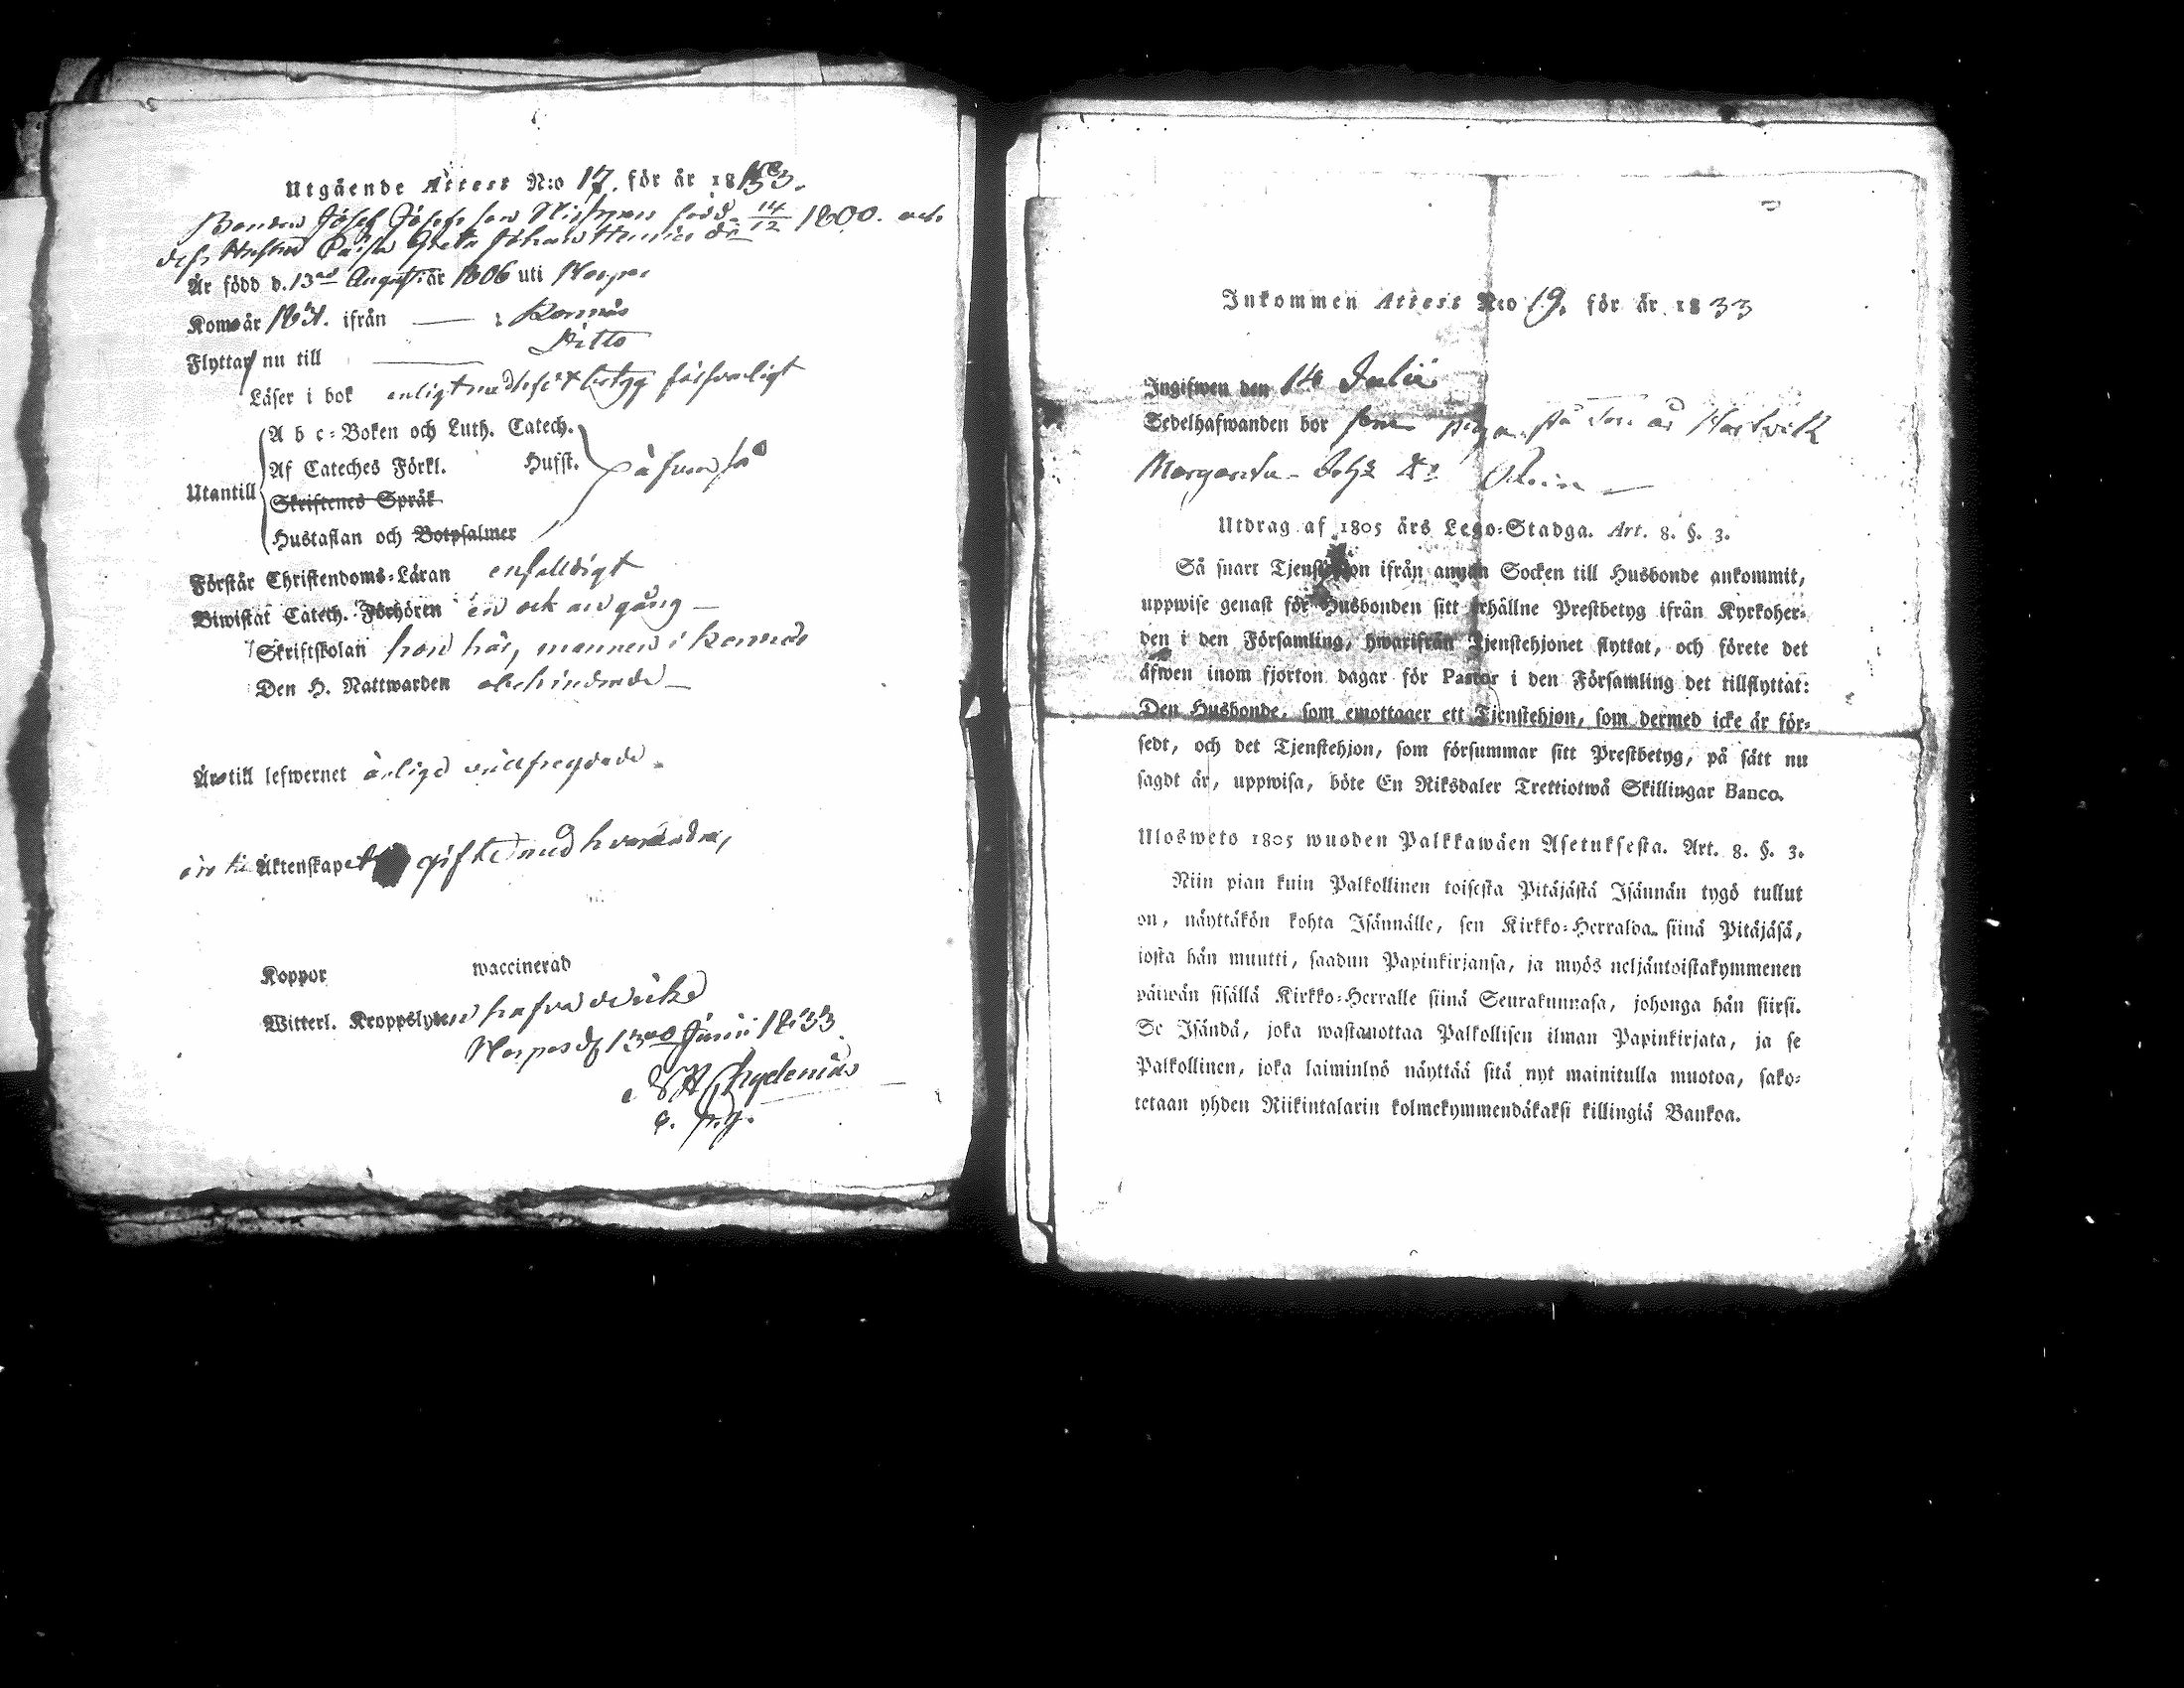 Utgående Attest N:o 17. för år 1833.
Bonden Josef Josefs son född 14/12 1800. och
dess Hustru Greta
Är född d. 13 Augusti år 1806 uti
Kom år 1831. ifrån — Kemiö
Flyttar nu till — Ditto
Läser i bok enligt försvarligt
A b c-Boken och Luth. Catech.
Af Cateches Förkl. Hufst.
Utantill
Skriftenes Språk
Hustaflan och Botpsalmer
Förstår Christendoms-Läran enfaldigt
Biwistat Catech. Förhören en och an gång —
Skriftskolan hon här, mannen i
Den H. Nattwarden obehindrade —
Äro till lefwernet ärlige
äro till Äktenskapet gifte med hvarandra,
Koppor waccinerad
Witterl. Kroppslyten hafva de icke
d. 13 Junii 1833.
Chydenius
Inkommen Attest N:o 19. för år 1833
Ingifwen den 14 Julii
Sedelhafwanden bor som piga
Margareta
Utdrag af 1805 års Lego-Stadga. Art. 8. §. 3.
Så snart Tjenstehjon ifrån annan Socken till Husbonde ankommit,
uppwise genast för Husbonden sitt erhållne Prestbetyg ifrån Kyrkoher-
den i den Församling, hwarifrån Tjenstehjonet flyttat, och förete det
äfwen inom fjorton dagar för Pastor i den Församling det tillflyttat:
Den Husbonde, som emottager ett Tjenstehjon, som dermed icke är för-
sedt, och det Tjenstehjon, som försummar sitt Prestbetyg, på sätt nu
sagdt är, uppwisa, böte En Riksdaler Trettiotwå Skillingar Banco.
Ulosweto 1805 wuoden Palkkawäen Asetuksesta. Art. 8. §. 3.
Niin pian kuin Palkollinen toisesta Pitäjästä Isännän tygö tullut
on, näyttäkön kohta Isännälle, sen Kirkko-Herralda siinä Pitäjäsä,
josta hän muutti, saadun Papinkirjansa, ja myös neljäntoistakymmenen
päiwän sisällä Kirkko-Herralle siinä Seurakunnasa, johonga hän siirsi.
Se Isändä, joka wastanottaa Palkollisen ilman Papinkirjata, ja se
Palkollinen, joka laiminlyö näyttää sitä nyt mainitulla muotoa, sako-
tetaan yhden Riikintalarin kolmekymmendäkaksi killingiä Bankoa.